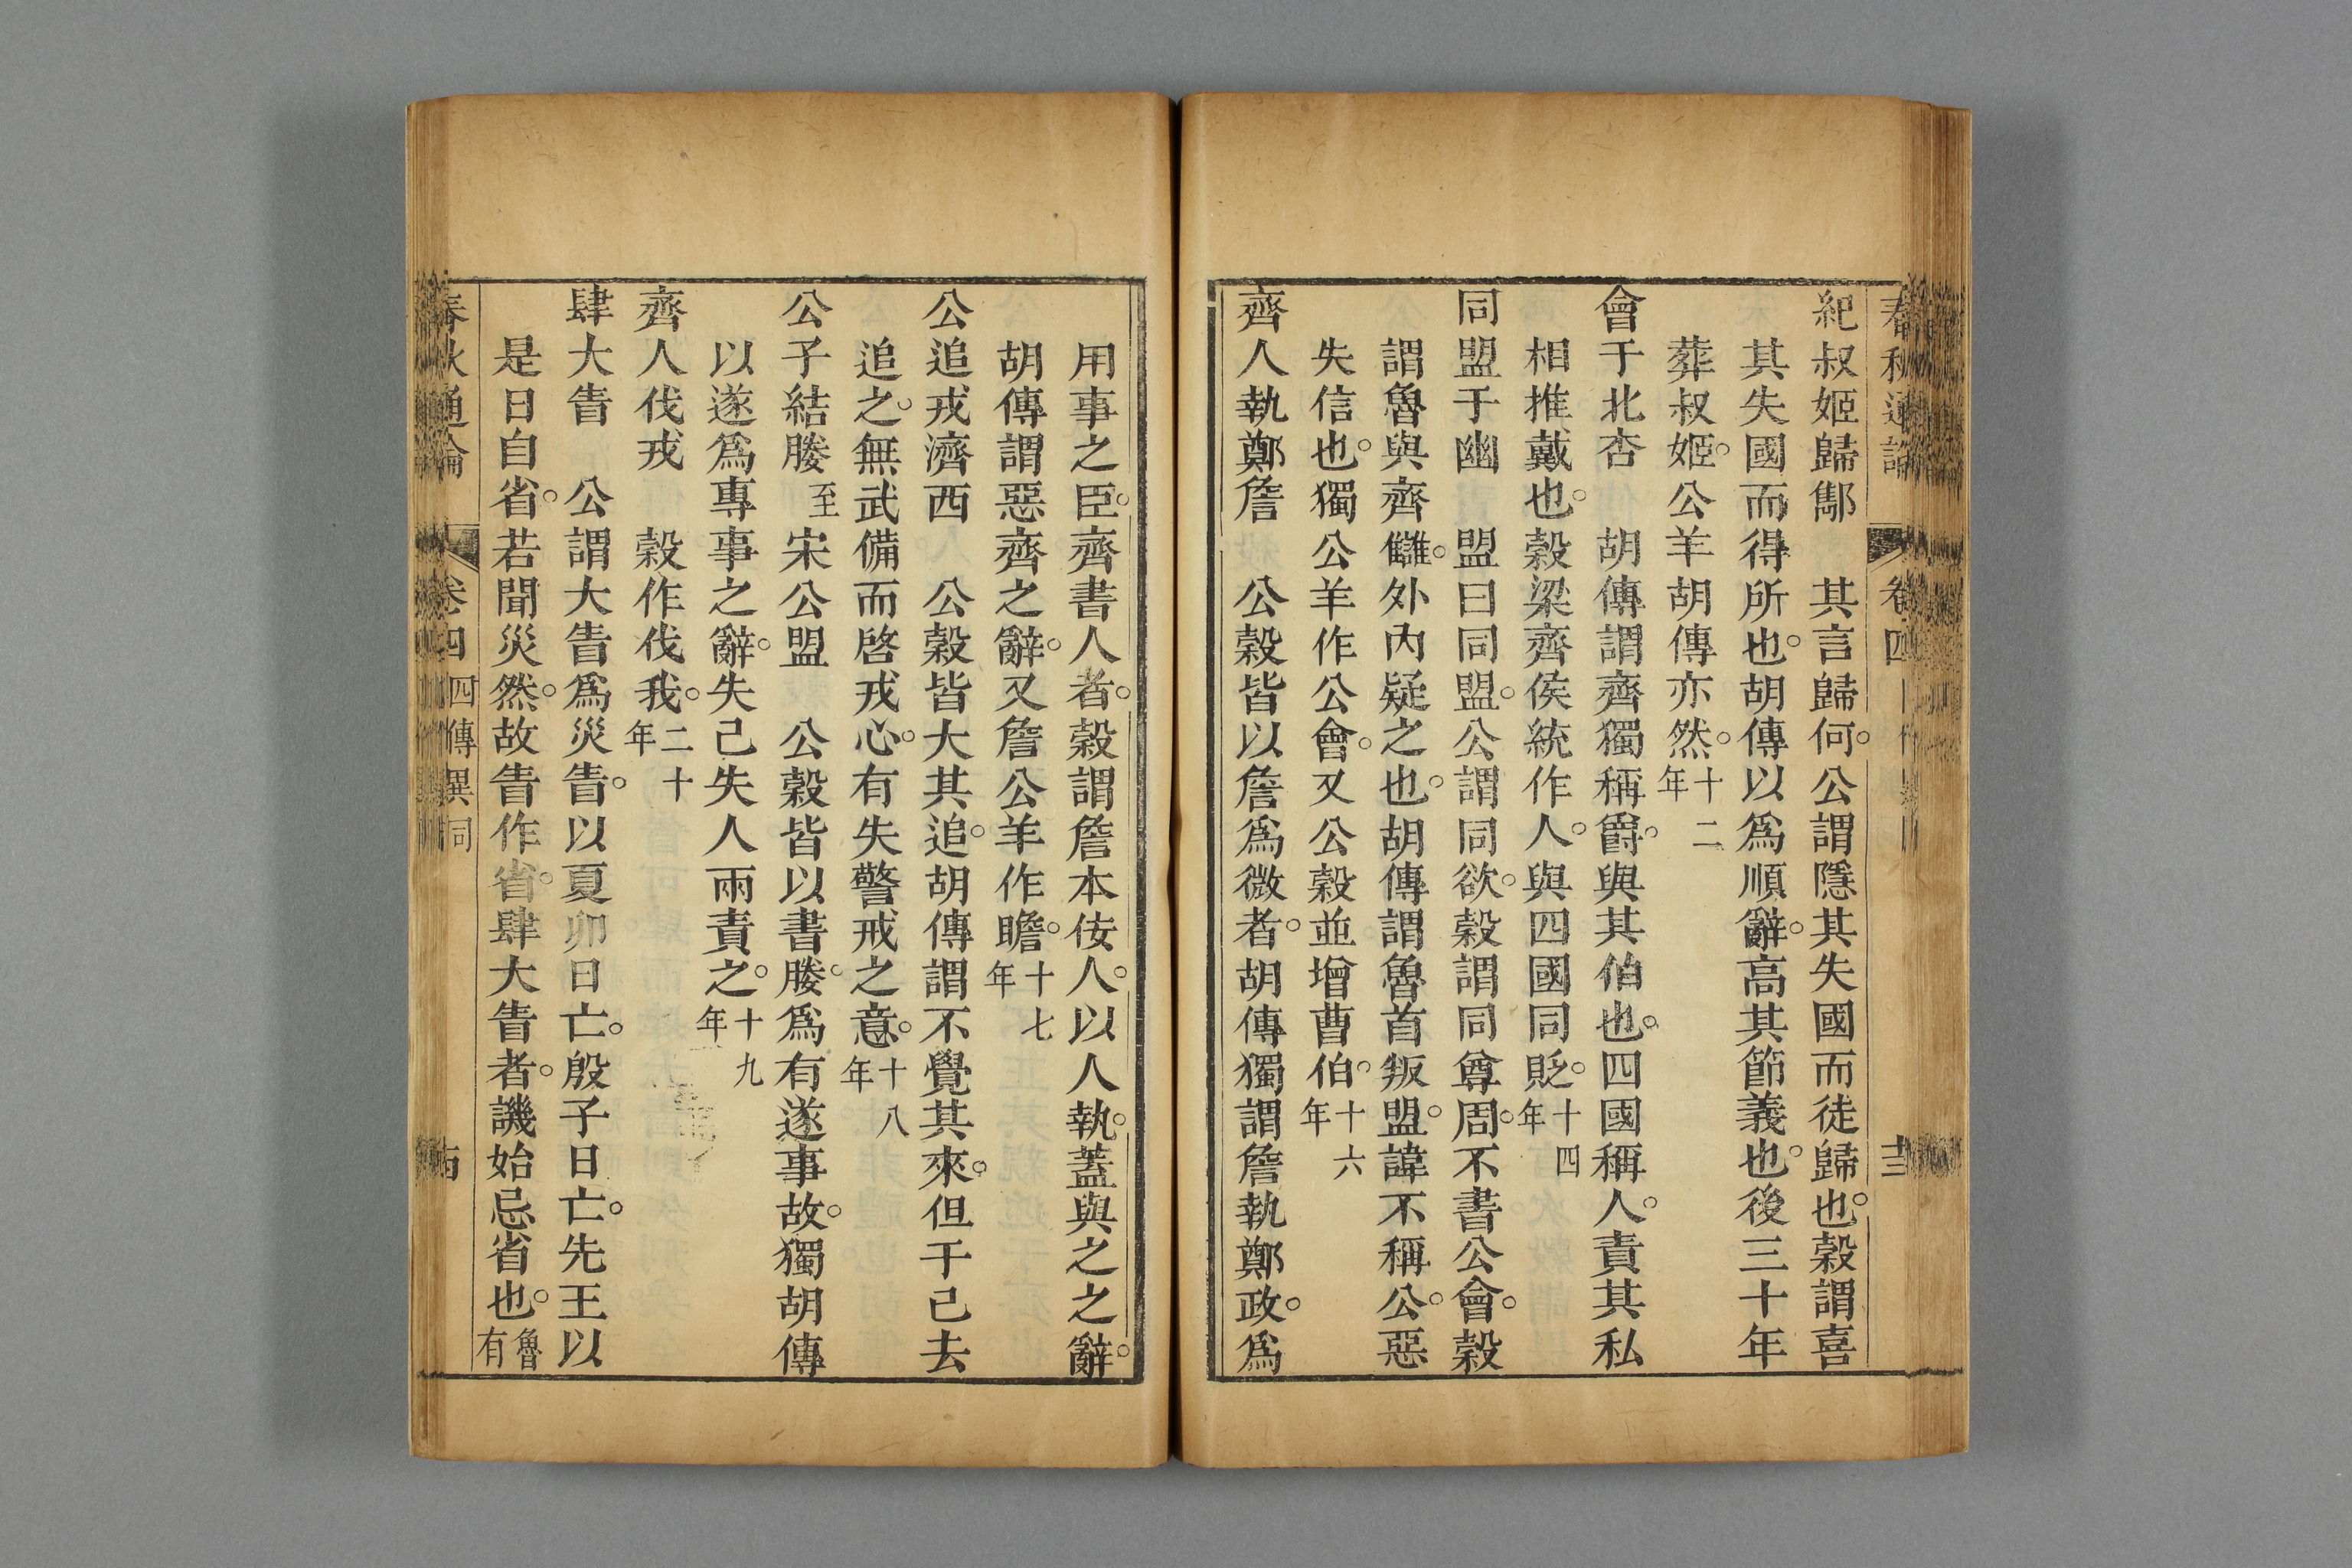 紀叔姬歸鄑　其言歸何。公謂隱其失國而徒歸也。穀謂喜
其失國而得所也。胡傳以爲順辭。高其節義也。後三十年
葬叔姬。公羊胡傳亦然。十二年
會于北杏　胡傳謂齊獨稱爵。與其伯也。四國稱人。責其私
相推戴也。穀梁齊侯統作人。與四國同貶。十四年
同盟于幽　盟曰同盟。公謂同欲。穀謂同尊周。不書公會。穀
謂魯與齊讎。外內疑之也。胡傳謂魯首叛盟。諱不稱公。惡
失信也。獨公羊作公會。又公穀並增曹伯。十六年
齊人執鄭詹　公穀皆以詹爲微者。胡傳獨謂詹執鄭政。爲
用事之臣。齊書人者。穀謂詹本佞人。以人執。蓋與之之辭。
胡傳謂惡齊之辭。又詹公羊作瞻。十七年
公追戎濟西　公穀皆大其追。胡傳謂不覺其來。但于己去
追之。無武備而啓戎心。有失警戒之意。十八年
公子結媵至宋公盟　公穀皆以書媵。爲有遂事故。獨胡傳
以遂爲專事之辭。失己失人兩責之。十九年
齊人伐戎　穀作伐我。二十年
肆大眚　公謂大眚爲災眚。以夏卯日亡。殷子日亡。先王以
是日自省。若聞災然。故眚作省。肆大眚者。譏始忌省也。魯有
春秋通論　卷四　四傳異同